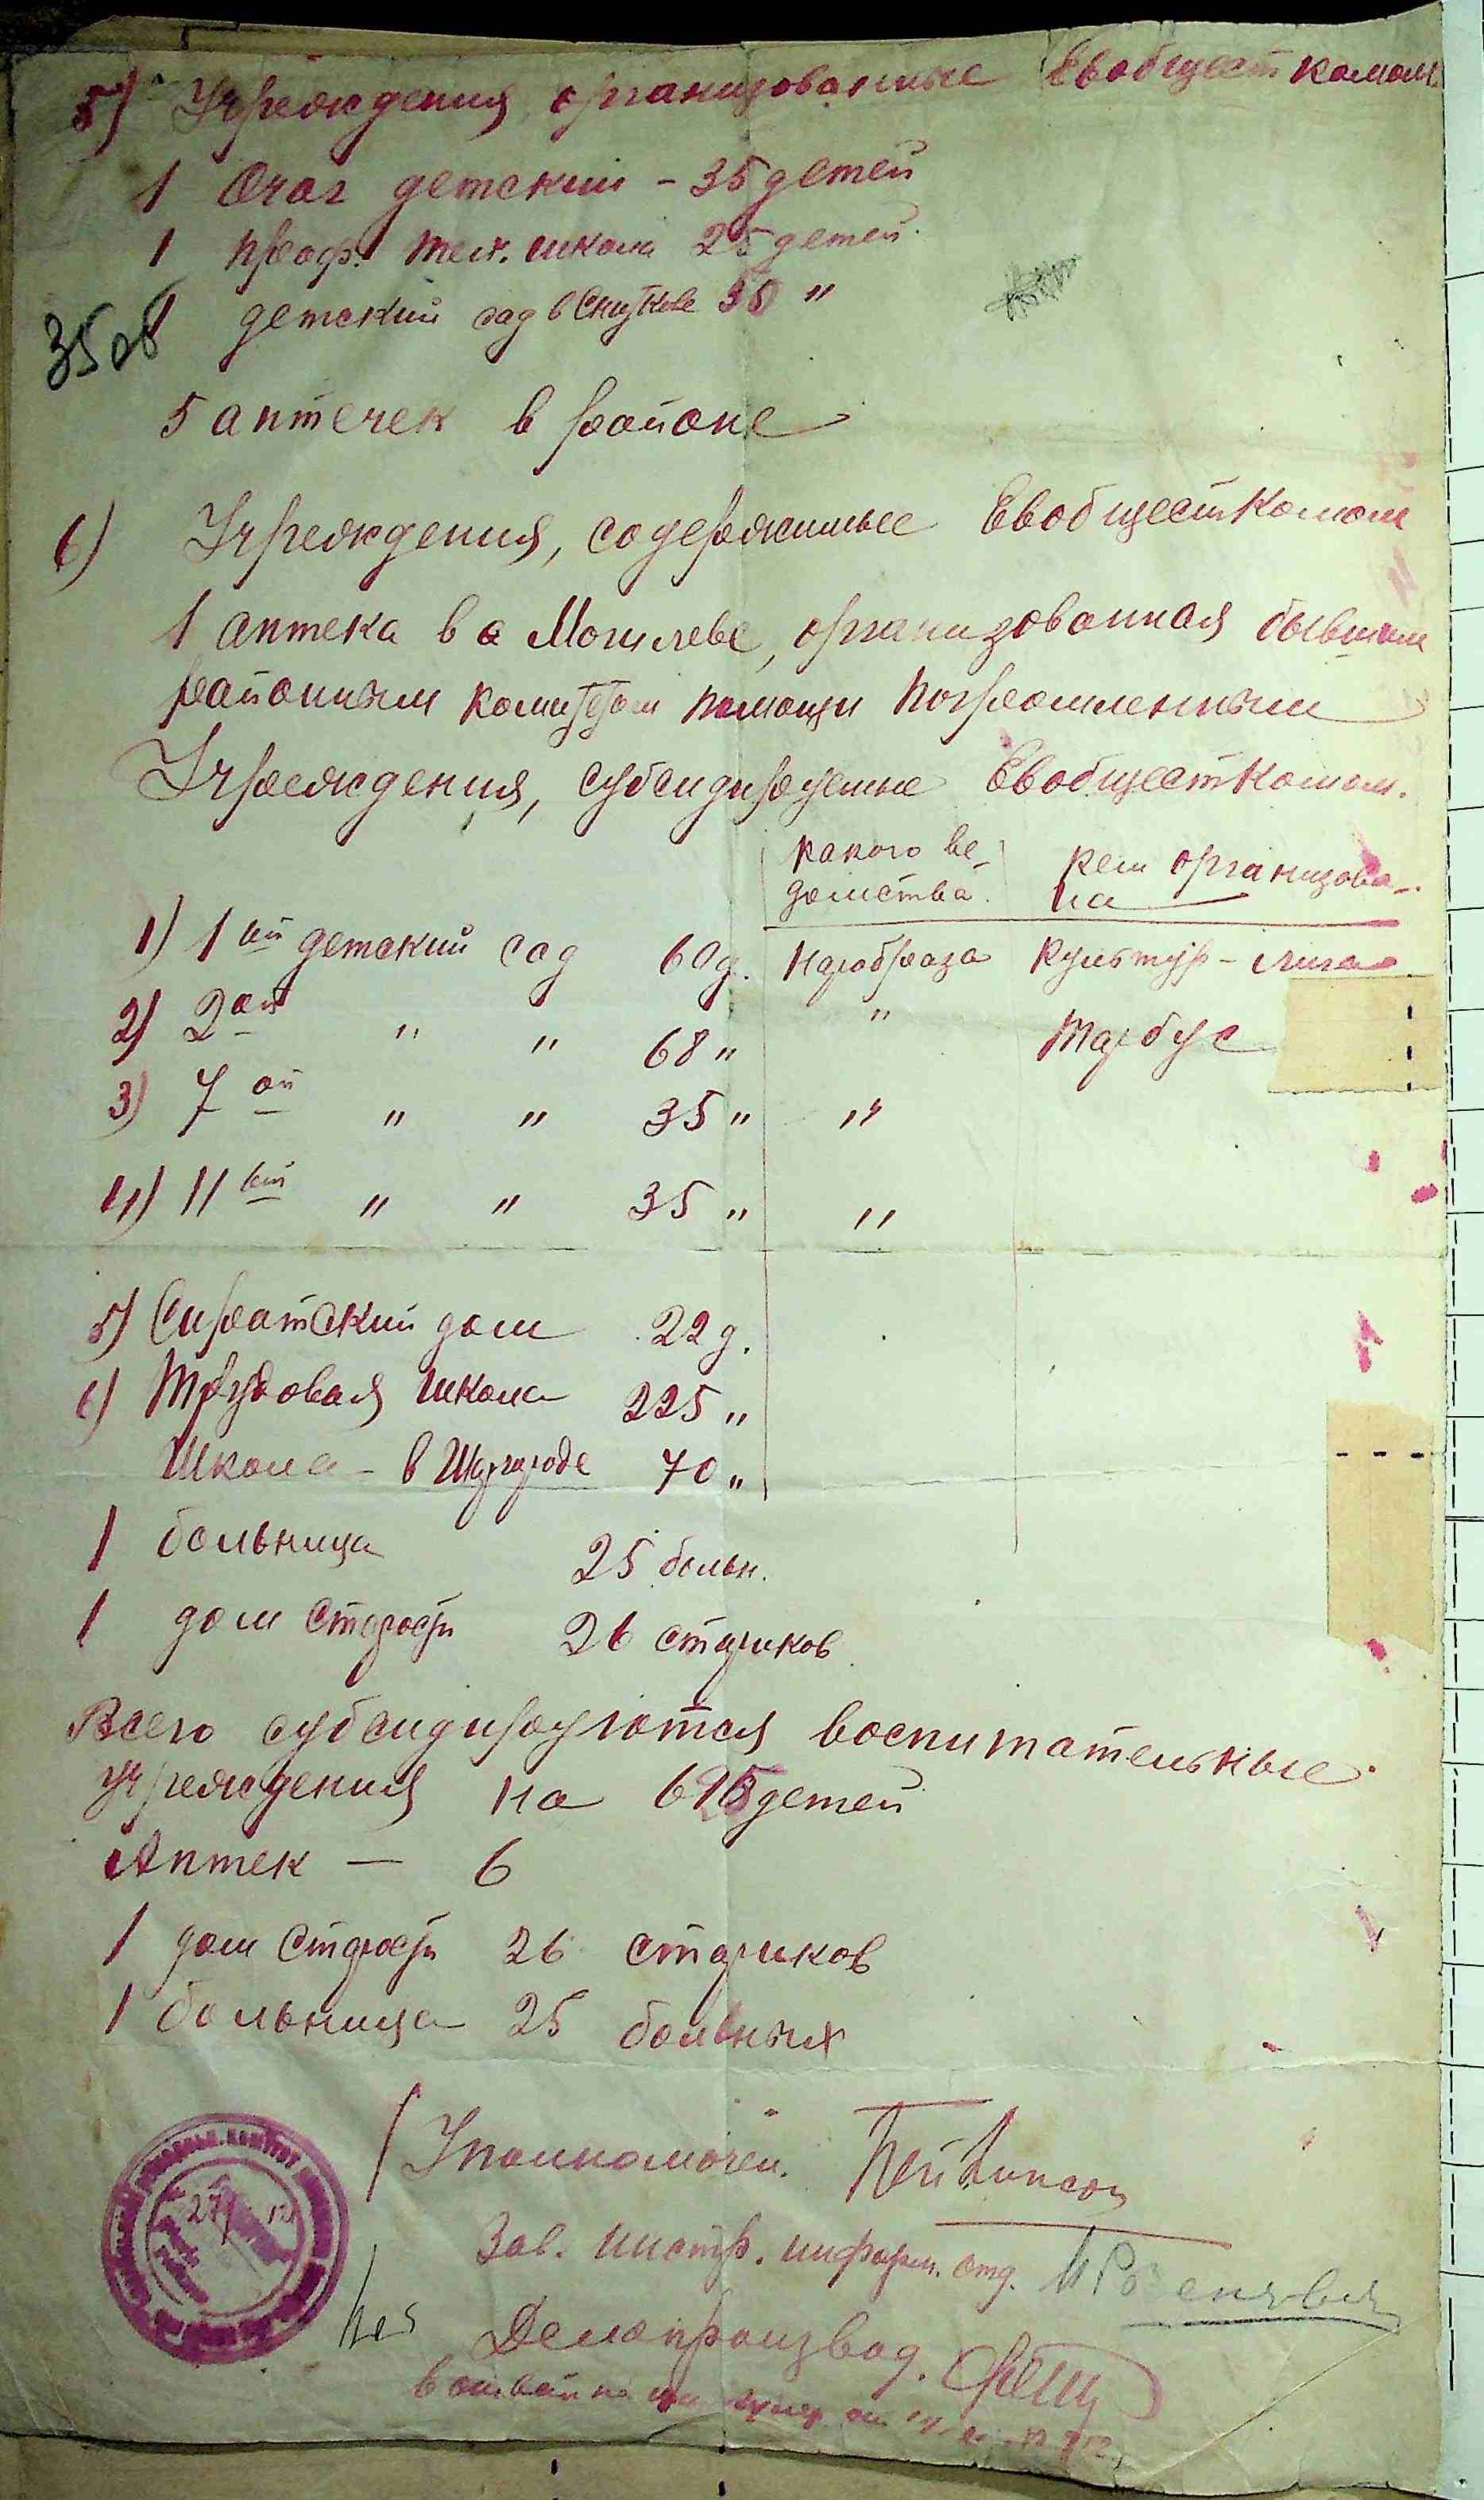 5) Учреждения организованные Евобщесткомом
1 Очаг детский - 35 детей
1 проф. тех. школа 25 детей.
1 детский сад в Сниткове 35 "
35об
5 аптечек в районе
6) Учреждения, содержимые Евобщесткомом
1 аптека в г Могилеве, организованная бывшим
районным комитетом помощи погромленным
Учреждения, субсидируемые Евобщесткомом.
какого ве- кем организова-
домства. на
1) 1ый детский сад 60 д. Наробраза Культур-лига
2) 2ой " " 68 " " Тарбус
3) 7ой " " 35 " "
4) 11ый " " 35 " "
5) Сиротский дом 22 д.
6) Трудовая школа 225 "
Школа - в Шаргороде 70 "
1 больница 25 больн.
1 дом старости 26 стариков
Всего субсидируются воспитательные
учреждения на детей
Аптек — 6
1 дом старости 26 стариков
1 больница 25 больных
Уполномочен.
27/
Зав. инстр. информ. отд.
Делопроизвод.